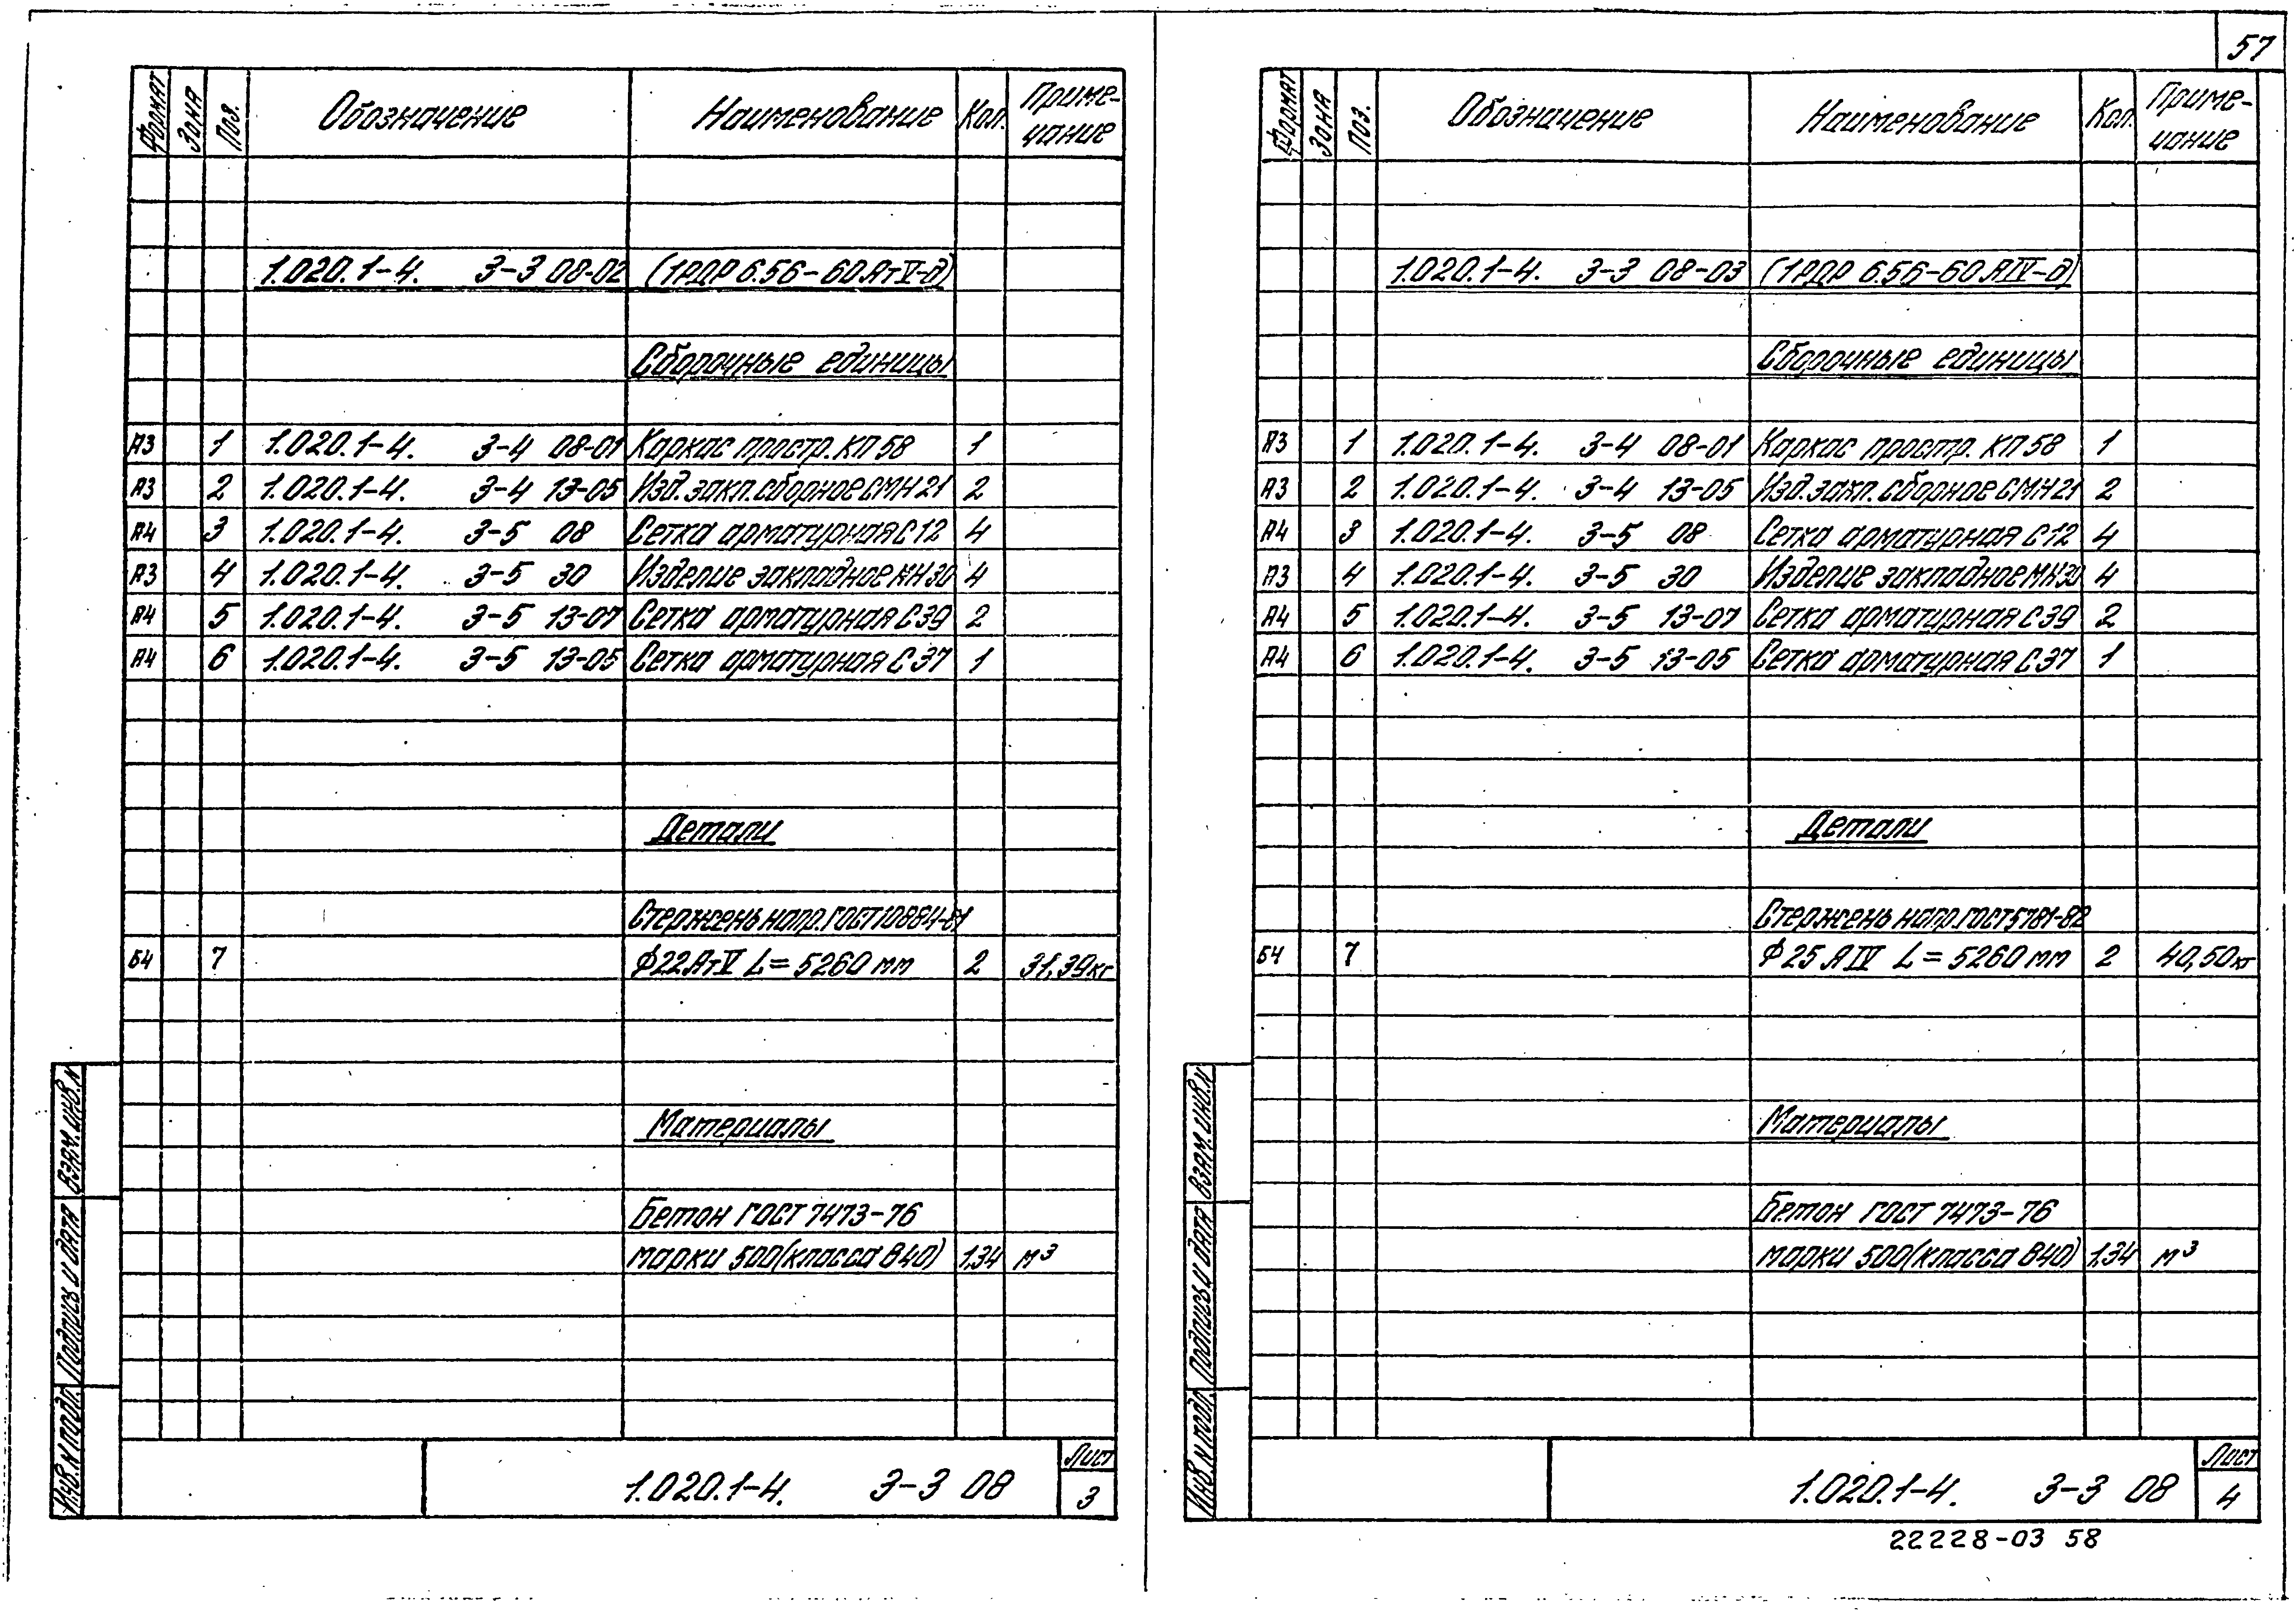 57
Формат Зона Поз. Обозначение Наименование Кол. Приме-
чание
1.020.1-4. 3-3 08-02 (1РДР 6.56-60АтV-д)
Сборочные единицы
А3 1 1.020.1-4. 3-4 08-01 Каркас простр. КП 58 1
А3 2 1.020.1-4. 3-4 13-05 Изд. закл. сборное СМН 21 2
А4 3 1.020.1-4. 3-5 08 Сетка арматурная С 12 4
А3 4 1.020.1-4. 3-5 30 Изделие закладное МН 30 4
А4 5 1.020.1-4. 3-5 13-07 Сетка арматурная С 39 2
А4 6 1.020.1-4. 3-5 13-05 Сетка арматурная С 37 1
Детали
Стержень напр. ГОСТ 10884-81
Б4 7 Ф22АтV L=5260 мм 2 31,39 кг
Материалы
Бетон ГОСТ 7473-76
марки 500 (класса В40) 1,34 м³
Инв. N подл. Подпись и дата Взам. инв. N
1.020.1-4. 3-3 08
Лист
3
Формат Зона Поз. Обозначение Наименование Кол. Приме-
чание
1.020.1-4. 3-3 08-03 (1РДР 6.56-60 АIV-д)
Сборочные единицы
А3 1 1.020.1-4. 3-4 08-01 Каркас простр. КП 58 1
А3 2 1.020.1-4. 3-4 13-05 Изд. закл. сборное СМН 21 2
А4 3 1.020.1-4. 3-5 08 Сетка арматурная С 12 4
А3 4 1.020.1-4. 3-5 30 Изделие закладное МН 30 4
А4 5 1.020.1-4. 3-5 13-07 Сетка арматурная С 39 2
А4 6 1.020.1-4. 3-5 13-05 Сетка арматурная С 37 1
Детали
Стержень напр. ГОСТ 5781-82
Б4 7 Ф25 АIV L=5260 мм 2 40,50 кг
Материалы
Бетон ГОСТ 7473-76
марки 500 (класса В40) 1,34 м³
Инв. N подл. Подпись и дата Взам. инв. N
1.020.1-4. 3-3 08
Лист
4
22228-03 58